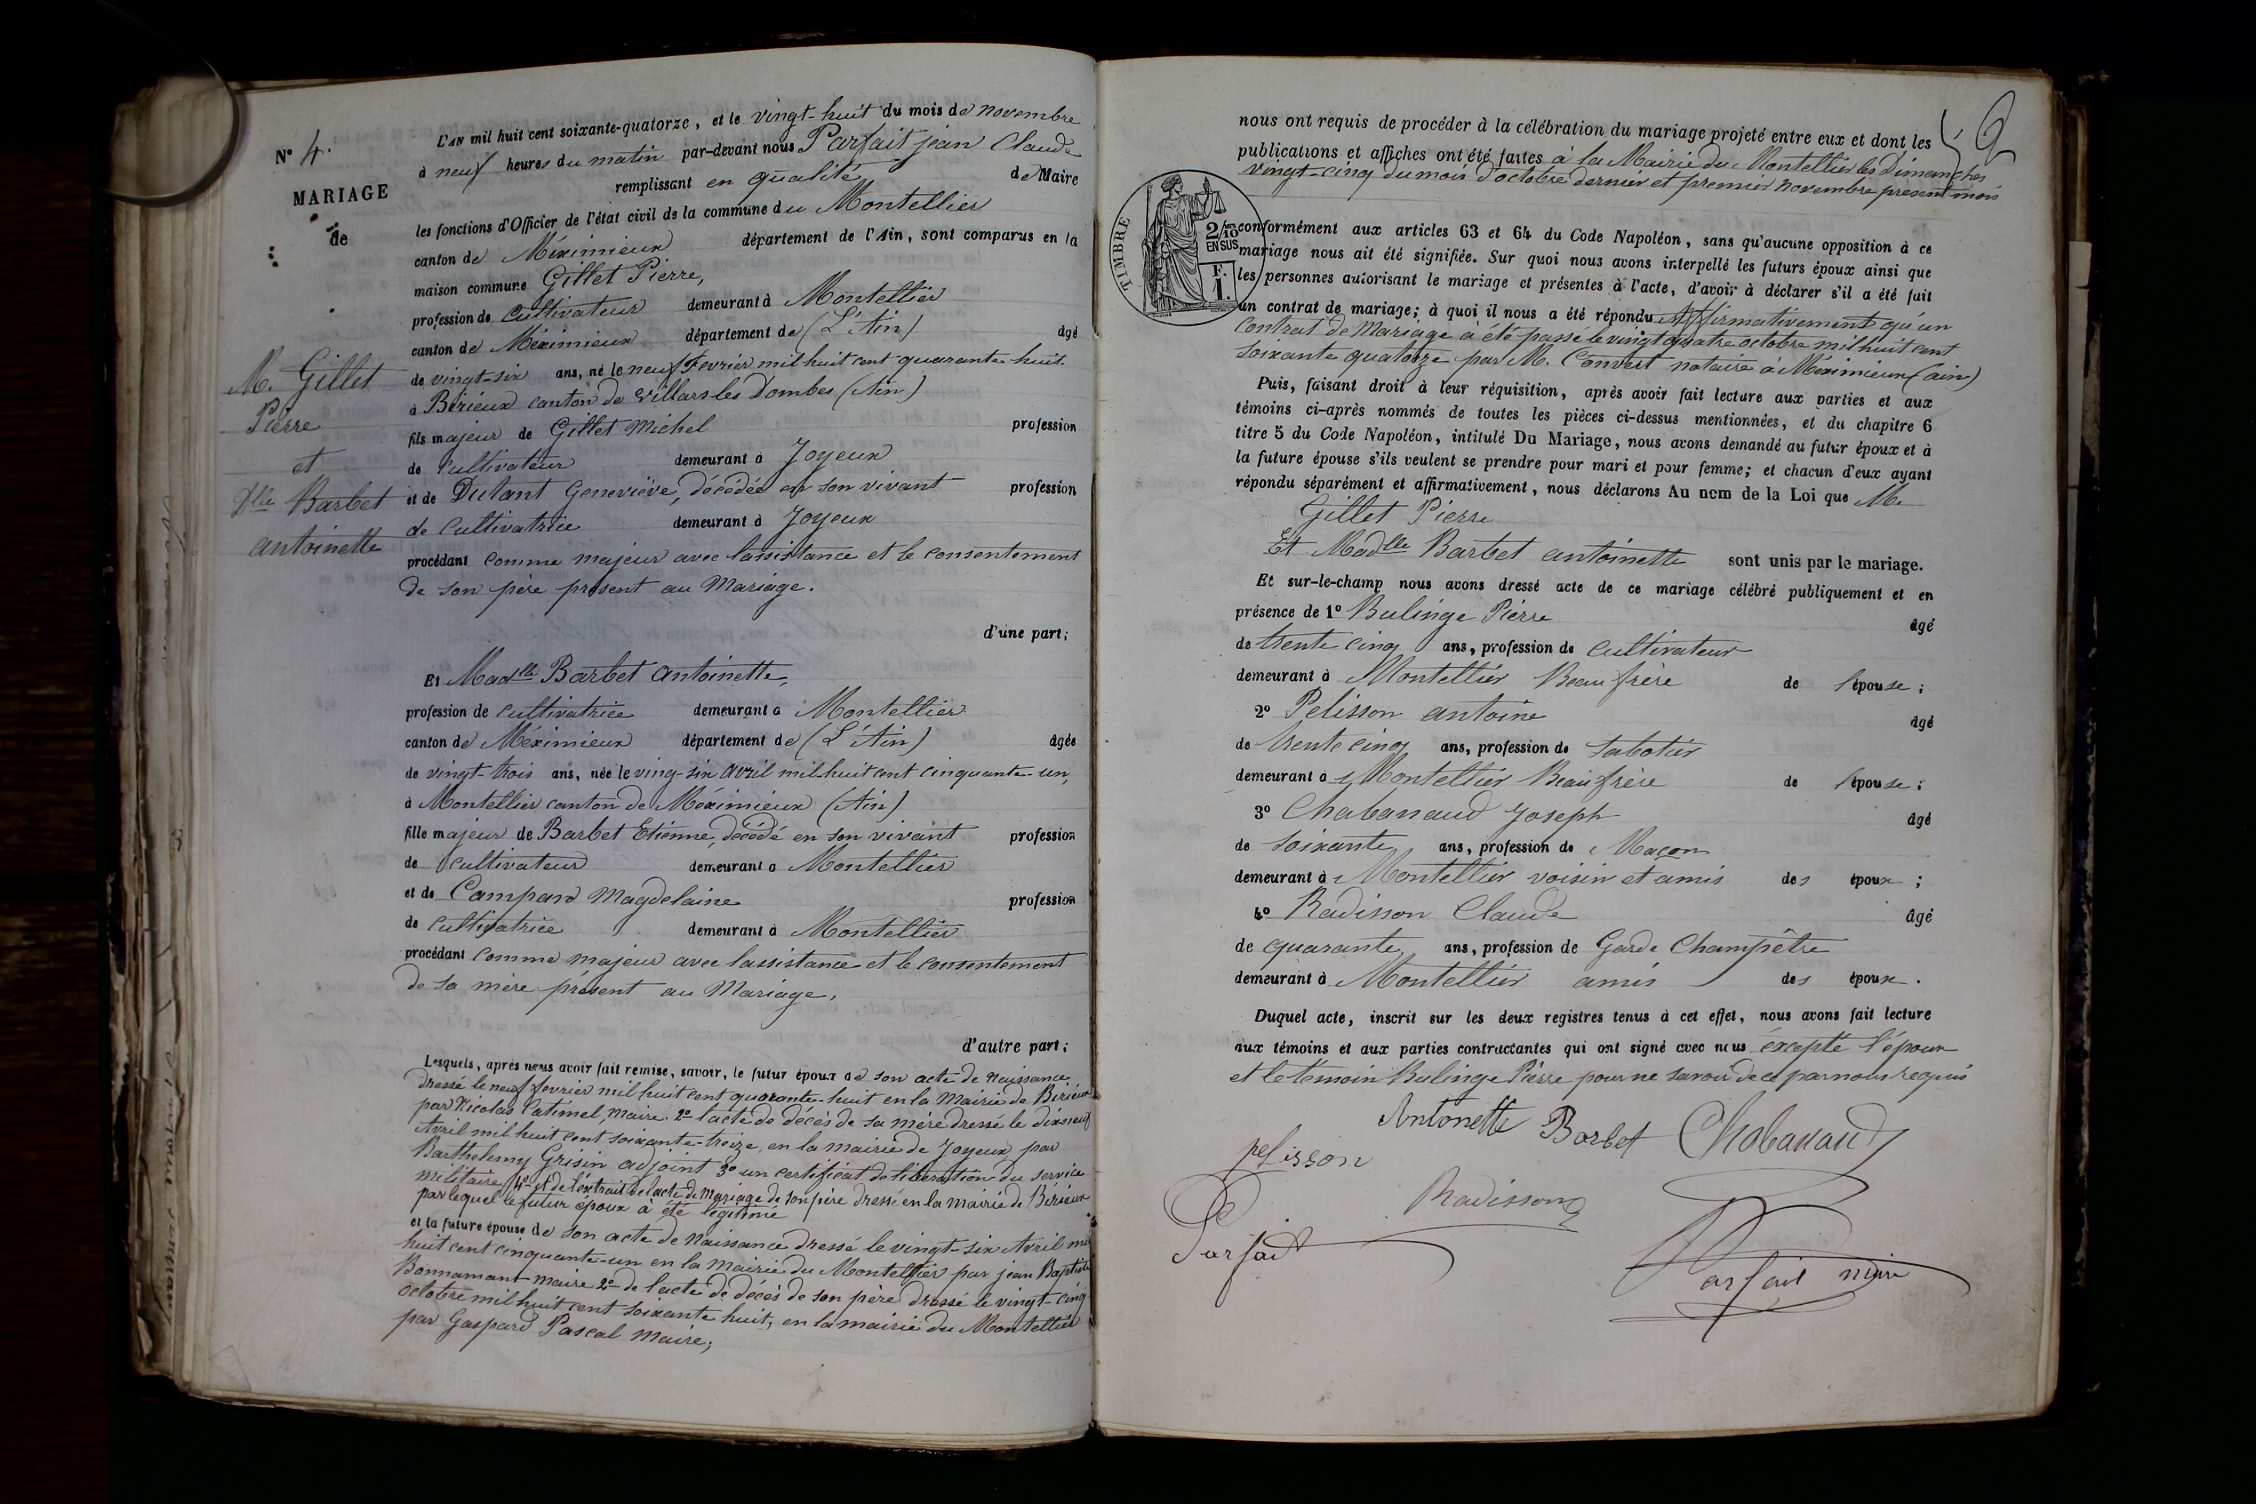 L'AN mil huit cent soixante-quatorze, et le vingt-huit du mois de novembre
N° 4.
à neuf heures du matin par-devant nous Parfait jean Claude
remplissant en qualité de Maire
MARIAGE
les fonctions d'Officier de l'état civil de la commune du Montellier
de
canton de Méximieux département de l'Ain, sont comparus en la
maison commune Gillet Pierre,
profession de Cultivateur demeurant à Montellier
canton de Méximieux département de (L'Ain) âgé
M. Gillet
de vingt-six ans, né le neuf Fevrier mil huit cent quarante-huit
Pierre
à Birieux canton de Villars les Dombes (Ain)
fils majeur de Gillet Michel profession
et
de Cultivateur demeurant à Joyeux
Dlle Barbet
et de Dutant Geneviève, décédée en son vivant profession
antoinette
de Cultivatrice demeurant à Joyeux
procédant comme majeur avec l'assistance et le consentement
de son père présent au Mariage.
d'une part;
Et Madlle Barbet Antoinette,
profession de Cultivatrice demeurant à Montellier
canton de Méximieux département de (L'Ain) âgée
de vingt-trois ans, née le ving-six avril mil huit cent cinquante-un,
à Montellier canton de Méximieux (Ain)
fille majeur de Barbet Etienne, décédé en son vivant profession
de Cultivateur demeurant à Montellier
et de Campard Magdelaine profession
de Cultivatrice demeurant à Montellier
procédant comme majeur avec l'assistance et le consentement
de sa mère présent au Mariage,
d'autre part;
Lesquels, après nous avoir fait remise, savoir, le futur époux de son acte de Naissance
dressé le neuf fevrier mil huit cent quarante-huit en la Mairie de Birieux
par Nicolas Catimel, Maire. 2° l'acte de décès de sa mère dressé le dixneuf
Avril mil huit cent soixante-treize, en la mairie de Joyeux par
Barthelemy Grisin adjoint 3° un certificat de libération du service
militaire, 4° et de l'extrait de l'acte de Mariage de son père dressé en la mairie de Birieux
par lequel le futur époux à été légitimé
et la future épouse de son acte de Naissance dressé le vingt-six Avril mil
huit cent cinquante-un en la mairie du Montellier par jean Baptiste
Bonnamant maire 2° de l'acte de décès de son père dressé le vingt-cinq
octobre mil huit cent soixante huit, en la mairie du Montellier
par Gaspard Pascal Maire;
nous ont requis de procéder à la célébration du mariage projeté entre eux et dont les
publications et affiches ont été faites à la Mairie du Montellier les Dimanches
vingt-cinq du mois d'octobre dernier et premier novembre present mois
TIMBRE
2/10
EN SUS
F.
1.
conformément aux articles 63 et 64 du Code Napoléon, sans qu'aucune opposition à ce
mariage nous ait été signifiée. Sur quoi nous avons interpellé les futurs époux ainsi que
les personnes autorisant le mariage et présentes à l'acte, d'avoir à déclarer s'il a été fait
un contrat de mariage; à quoi il nous a été répondu Affirmativement qu'un
Contrat de Mariage à été passé le vingt quatre octobre mil huit cent
soixante quatorze par M. Convert notaire à Méximieux (ain)
Puis, faisant droit à leur réquisition, après avoir fait lecture aux parties et aux
témoins ci-après nommés de toutes les pièces ci-dessus mentionnées, et du chapitre 6
titre 5 du Code Napoléon, intitulé Du Mariage, nous avons demandé au futur époux et à
la future épouse s'ils veulent se prendre pour mari et pour femme; et chacun d'eux ayant
répondu séparément et affirmativement, nous déclarons Au nom de la Loi que M.
Gillet Pierre
Et Madlle Barbet antoinette sont unis par le mariage.
Et sur-le-champ nous avons dressé acte de ce mariage célébré publiquement et en
présence de 1° Bulinge Pierre âgé
de trente cinq ans, profession de Cultivateur
demeurant à Montellier Beau frère de l'épouse;
2° Pelisson antoine âgé
de trente cinq ans, profession de Sabotier
demeurant à Montellier Beau frère de l'épouse;
3° Chabanaud Joseph âgé
de soixante ans, profession de Maçon
demeurant à Montellier voisin et amis des époux;
4° Radisson Claude âgé
de quarante ans, profession de Garde Champêtre
demeurant à Montellier amis des époux.
Duquel acte, inscrit sur les deux registres tenus à cet effet, nous avons fait lecture
aux témoins et aux parties contractantes qui ont signé avec nous excepté l'époux
et le témoin Bulinge Pierre pour ne savoir de ce par nous requis
Antonette Barbet Chabanaud
pelisson
Radisson
Parfait
Parfait maire